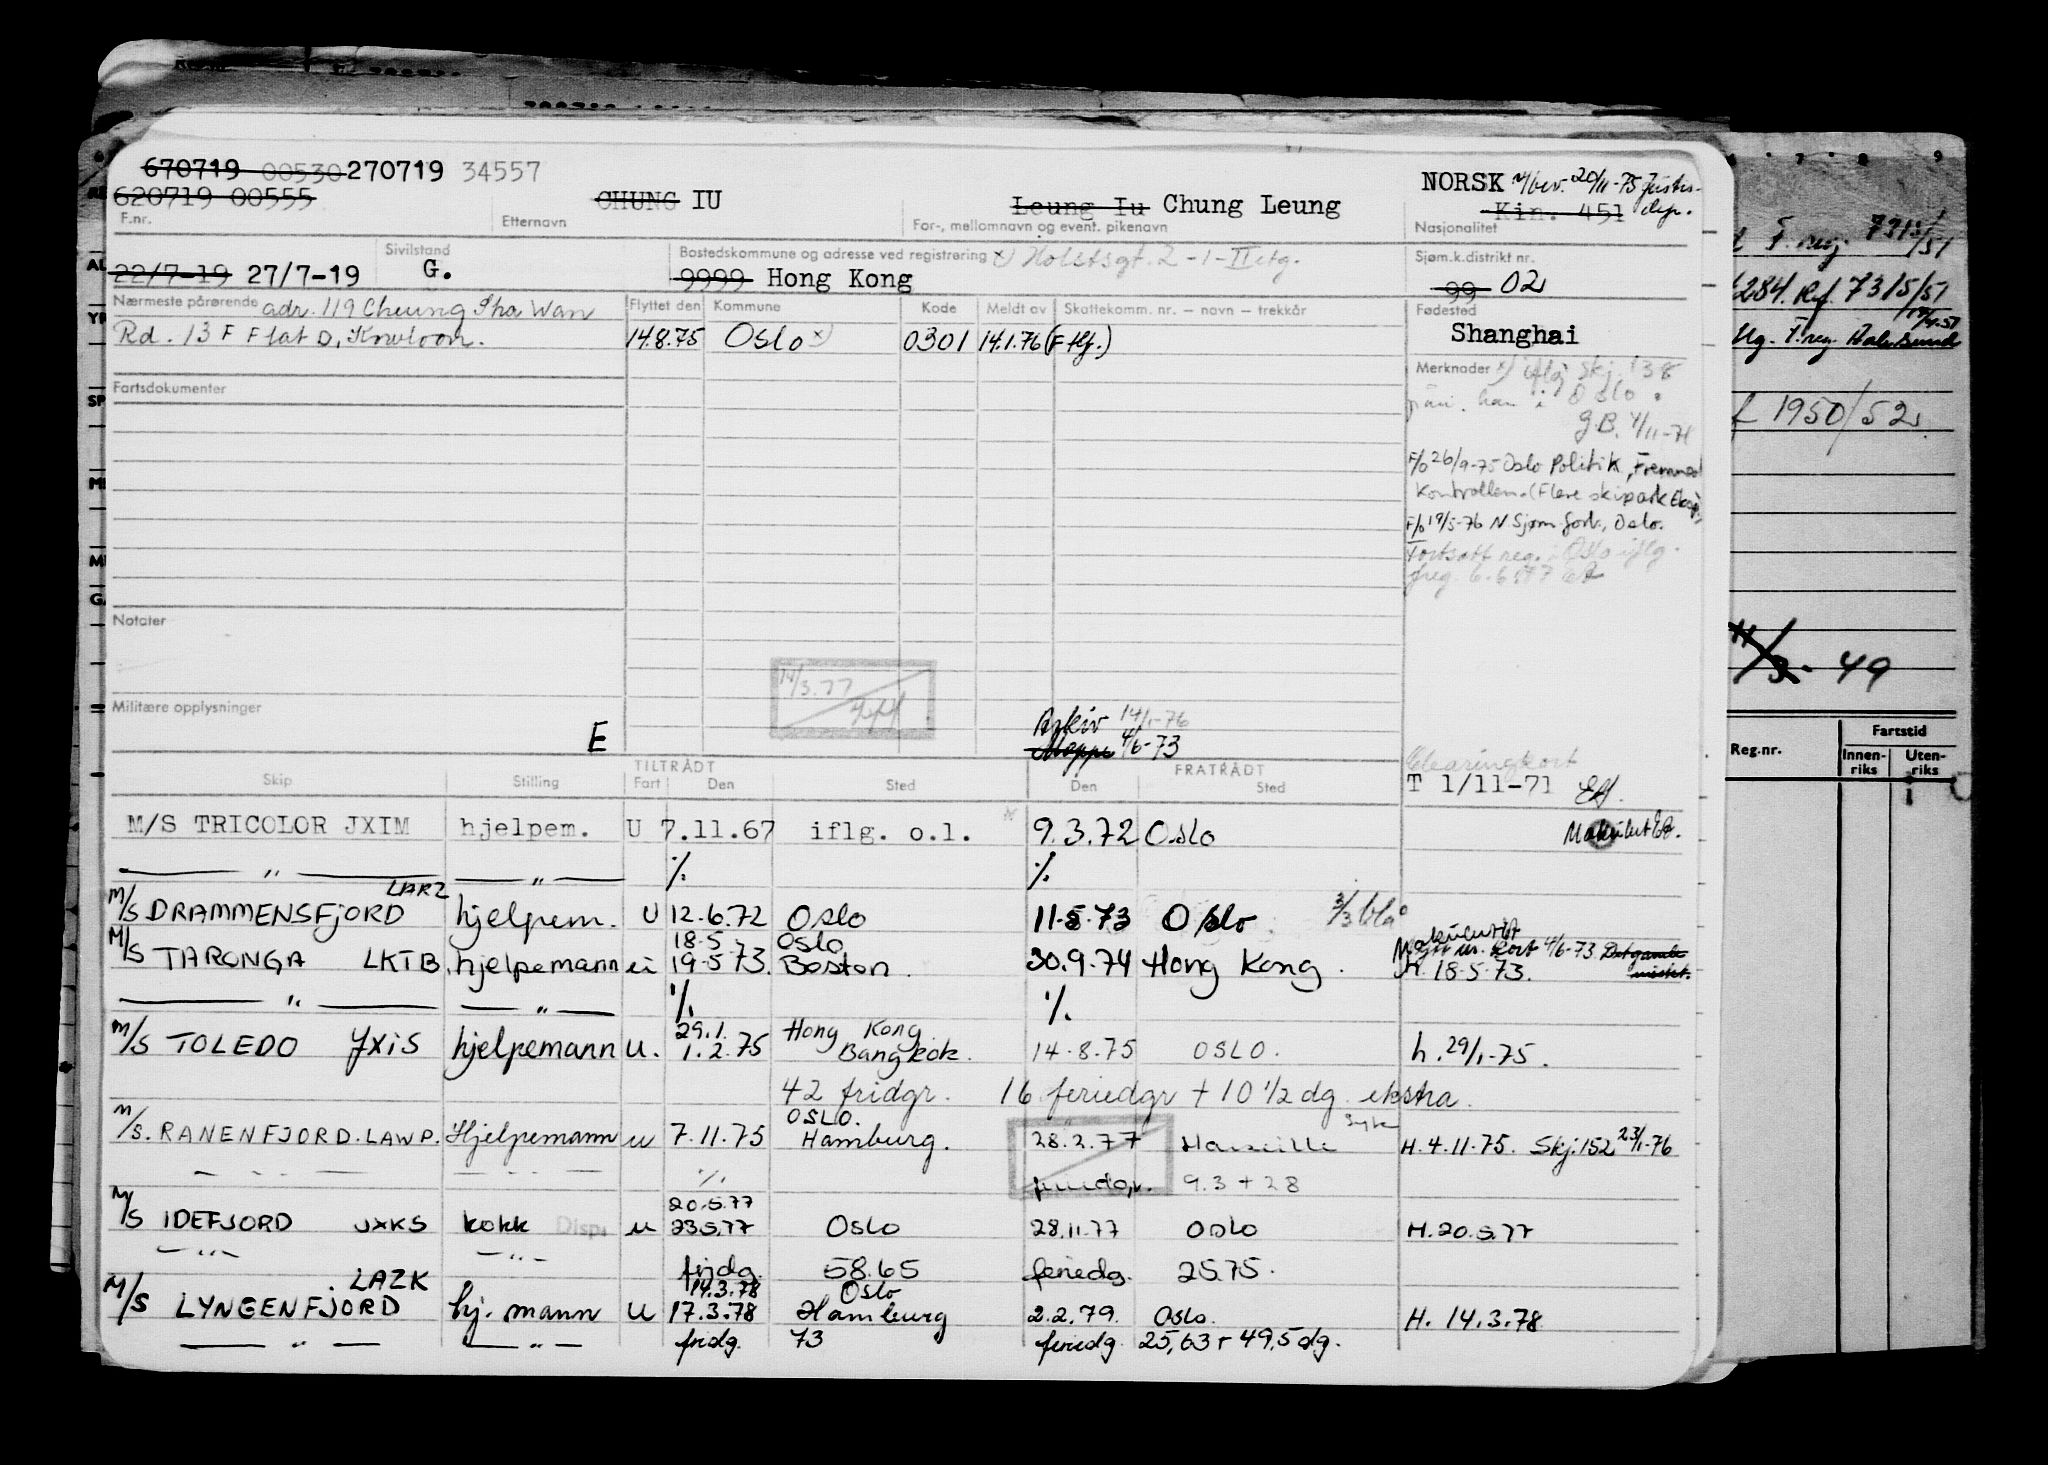 670719 00530 270719 34557
620719 00555
CHUNG IU
Leung Iu Chung Leung
NORSK m/bev. 20/11-75 Justis-
dep.
Kin. 451
F.nr.
Etternavn
For-, mellomnavn og event. pikenavn
Nasjonalitet
22/7-19 27/7-19
Sivilstand
G.
Bostedskommune og adresse ved registrering x) Holstsgt. 2-1-II etg.
9999 Hong Kong
Sjøm.k.distrikt nr.
99 02
Nærmeste pårørende adr. 119 Cheung Sha Wan
Rd. 13 F Flat D, Kowloon.
Flyttet den
Kommune
Kode
Meldt av
Skattekomm. nr. — navn — trekkår
14.8.75 Oslo x) 0301 14.1.76 (F.flj.)
Fødested
Shanghai
Fartsdokumenter
Merknader x) iflg Skj. 138
han i Oslo.
G.B. 4/11-76
F/o 26/9-75 Oslo Politik, Fremmed
Kontrollen. (Flere skipark
F/o 19/5-76 N Sjøm.forb., Oslo.
Fortsatt reg. i Oslo iflg.
freg. 6.6.77
Notater
14/3.77
Militære opplysninger
E
Arkiv 14/1-76
Mappe 4/6-73
Clearingkort
T 1/11-71
TILTRÅDT
FRATRÅDT
Skip
Stilling
Fart
Den
Sted
Den
Sted
M/S TRICOLOR JXIM hjelpem. U 7.11.67 iflg. o.l. 9.3.72 Oslo
— " — — " — ./. ./.
LARZ
M/S DRAMMENSFJORD hjelpem. U 12.6.72 Oslo 11.5.73 Oslo 3/3 blå
18.5. Oslo
M/S TARONGA LKTB hjelpemann u 19.5.73. Boston. 30.9.74 Hong Kong. h. 18.5.73.
Kort 4/6-73 Det gamle
mistet.
— " — — " — ./. ./.
29.1. Hong Kong
M/S TOLEDO JXIS hjelpemann U. 1.2.75 Bangkok. 14.8.75 OSLO. h. 29/1-75.
42 fridgr. 16 feriedgr + 10 1/2 dg. ekstra.
OSLO.
M/S. RANENFJORD. LAWP. Hjelpemann u 7.11.75 Hamburg. 28.2.77 Marseille Syk H. 4.11.75. Skj. 152 23/1-76
— " — ./. feriedgr. 9.3 + 28
20.5.77
M/S IDEFJORD JXKS kokk Disp. u 23.5.77 Oslo 28.11.77 Oslo H. 20.5.77
— " — — " — fridg. 58.65 feriedg. 25.75.
LAZK 14.3.78 Oslo
M/S LYNGENFJORD hj. mann U 17.3.78 Hamburg 2.2.79. Oslo. H. 14.3.78
— " — — " — fridg. 73 feriedg. 25,63 + 49,5 dg.
F. reg. 7313/51
284. Rf. 7315/51
F. reg.
f 1950/52
49
Reg.nr.
Fartstid
Innen-
riks
Uten-
riks